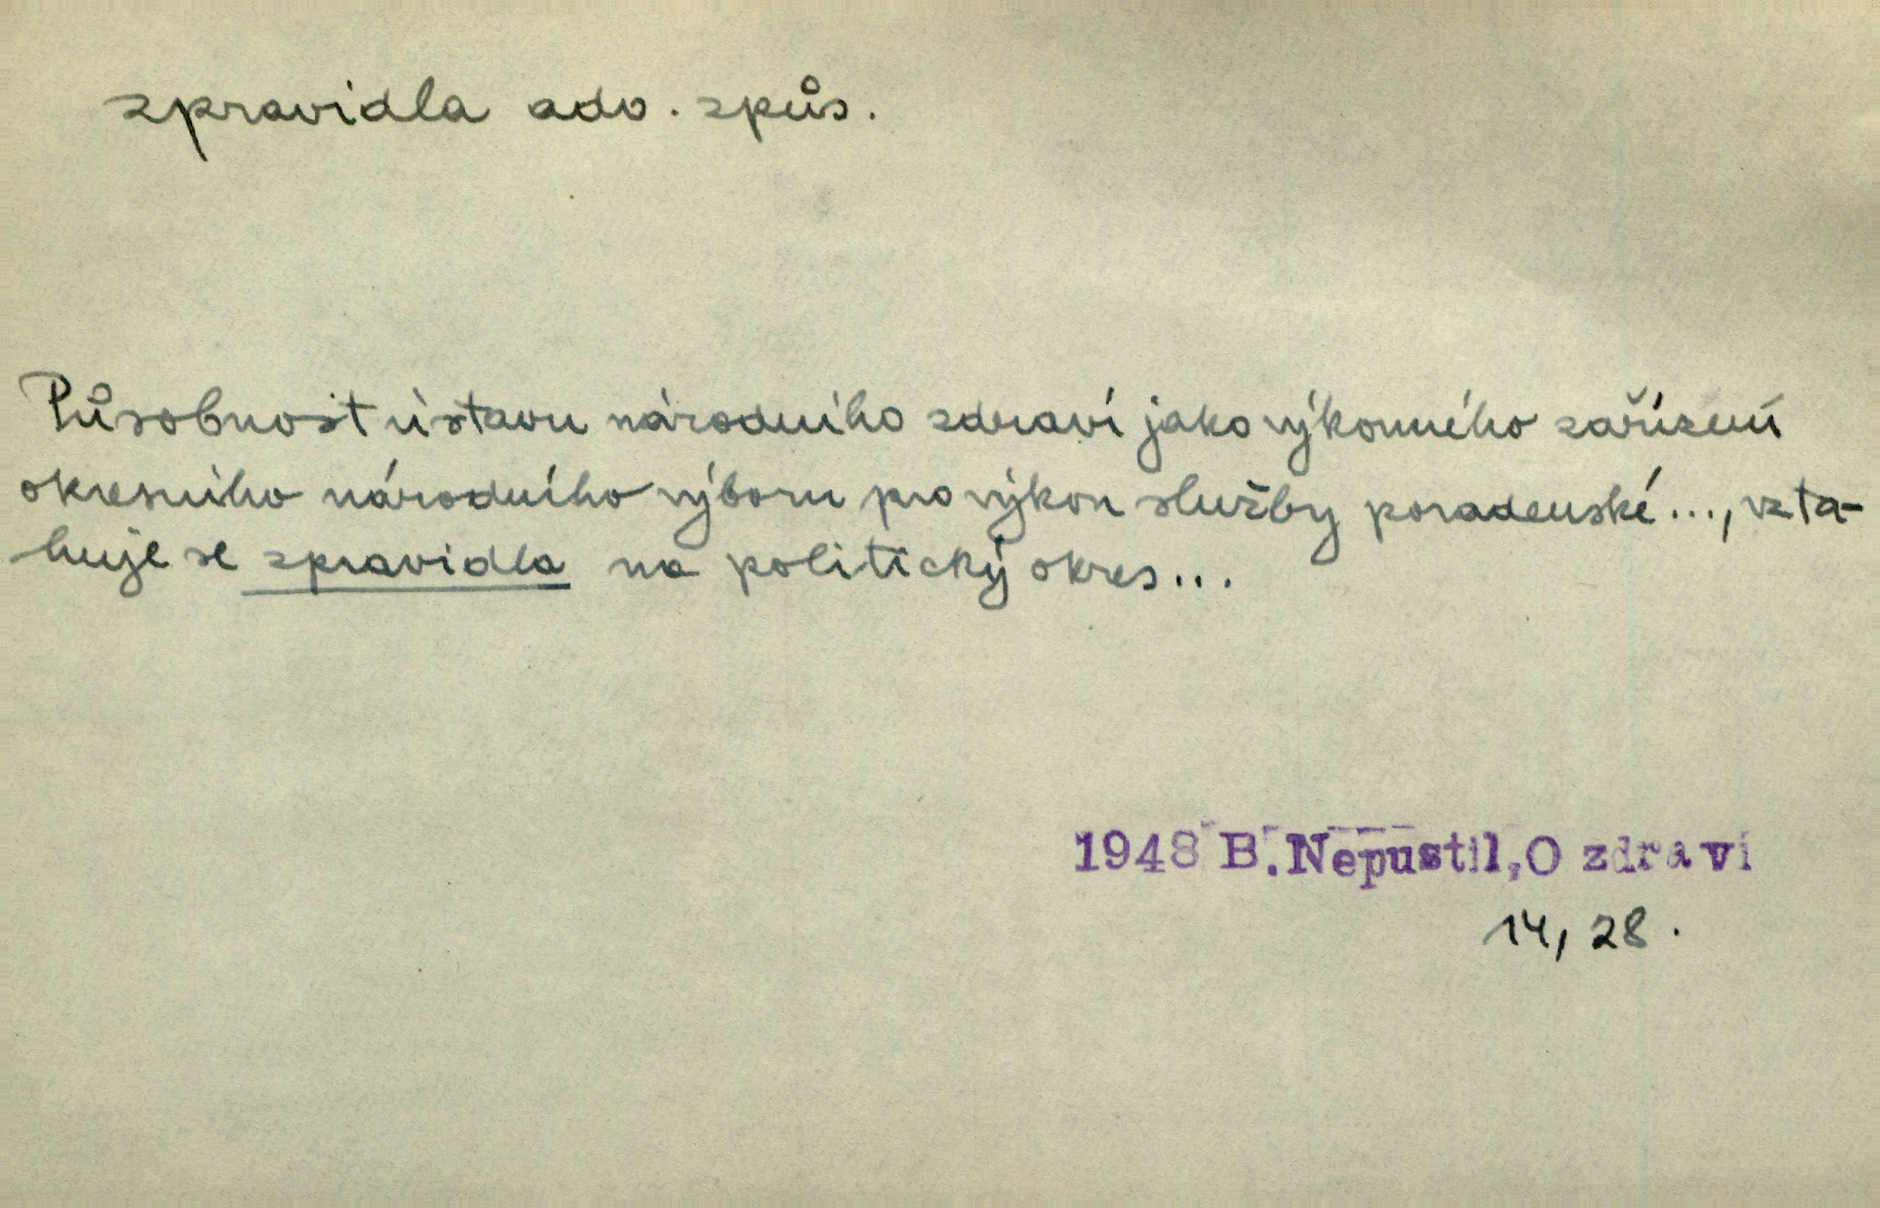 zpravidla adv. způs.
Působnost ústavu národního zdraví jako výkonného zařízení
okresního národního výboru pro výkon služby poradenské..., vzta-
huje se zpravidla na politický okres...
1948 B. Nepustil, O zdraví
14, 28.